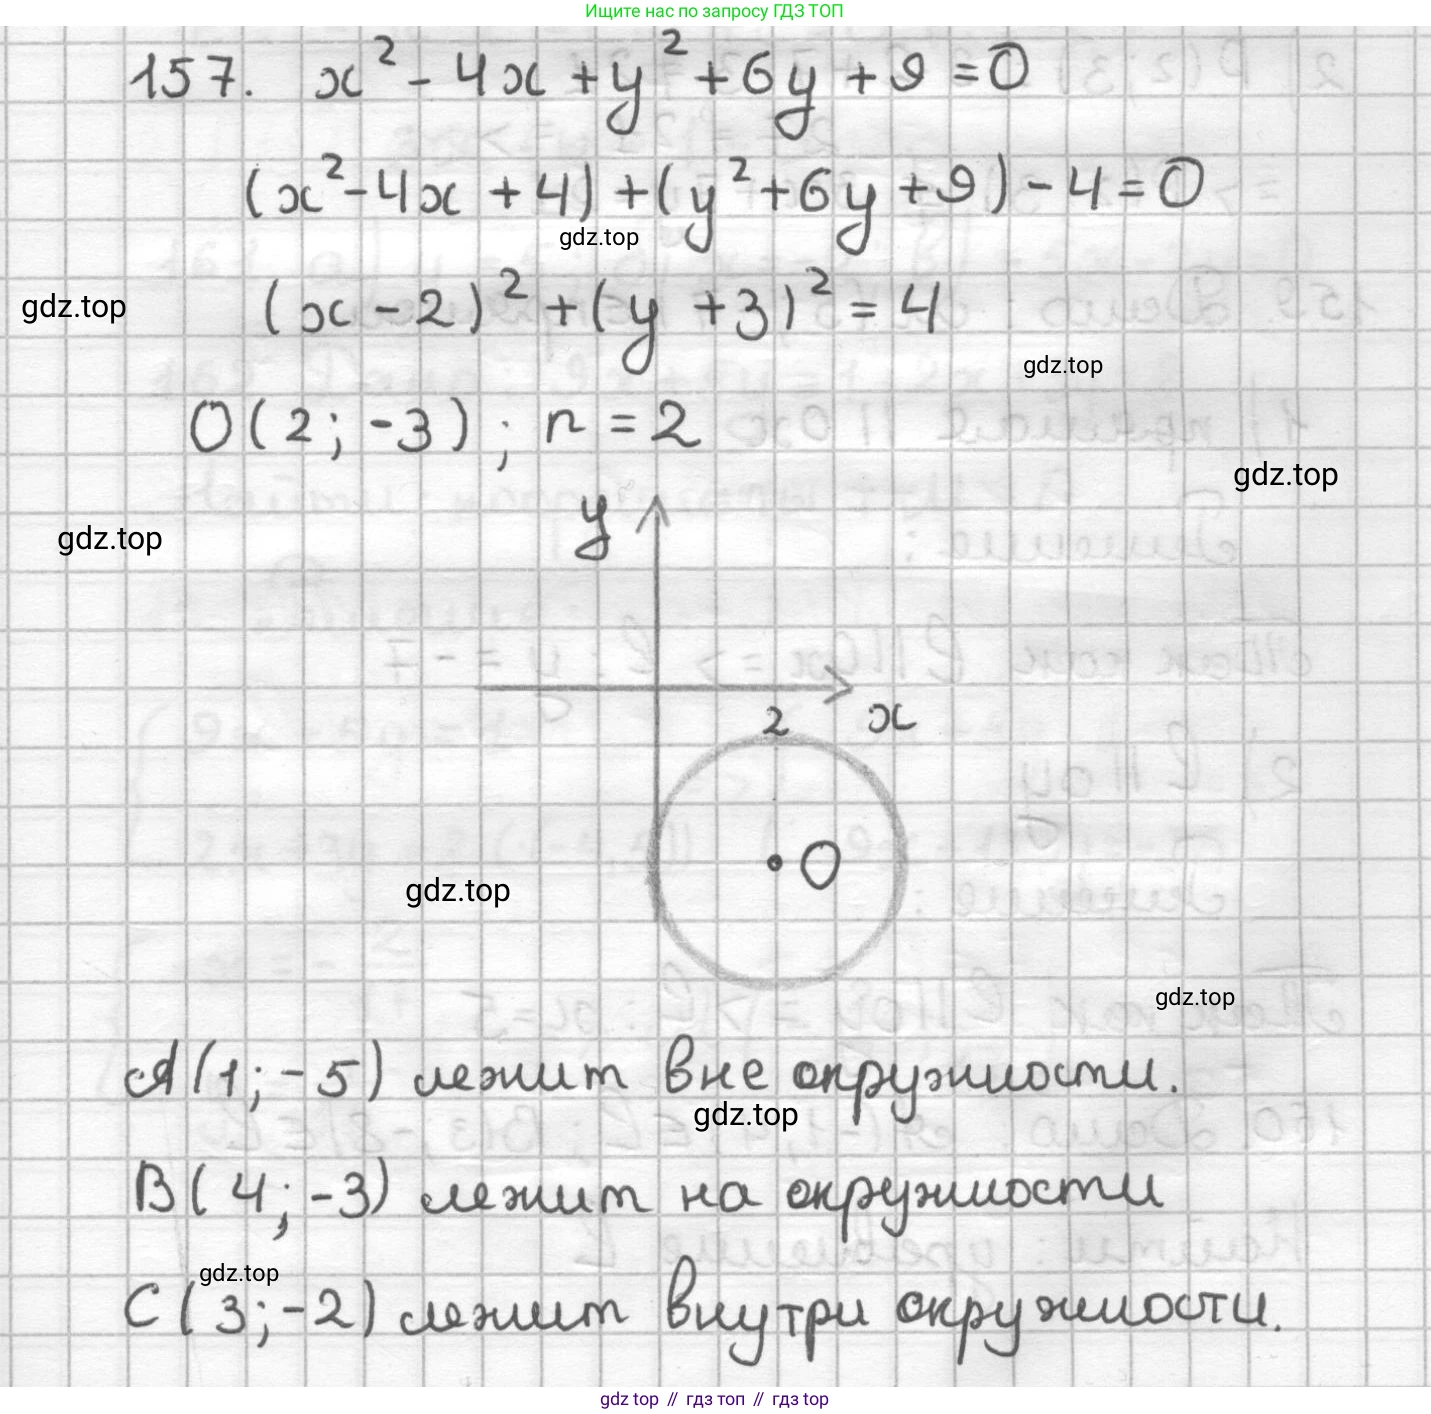 Ищите нас по запросу ГДЗ ТОП
157. x² - 4x + y² + 6y + 9 = 0
(x² - 4x + 4) + (y² + 6y + 9) - 4 = 0
gdz.top
gdz.top
(x - 2)² + (y + 3)² = 4
gdz.top
O(2; -3); r = 2
gdz.top
y
gdz.top
2
x
O
gdz.top
gdz.top
A(1; -5) лежит вне окружности.
gdz.top
B(4; -3) лежит на окружности
gdz.top
C(3; -2) лежит внутри окружности.
gdz top // гдз топ // гдз top